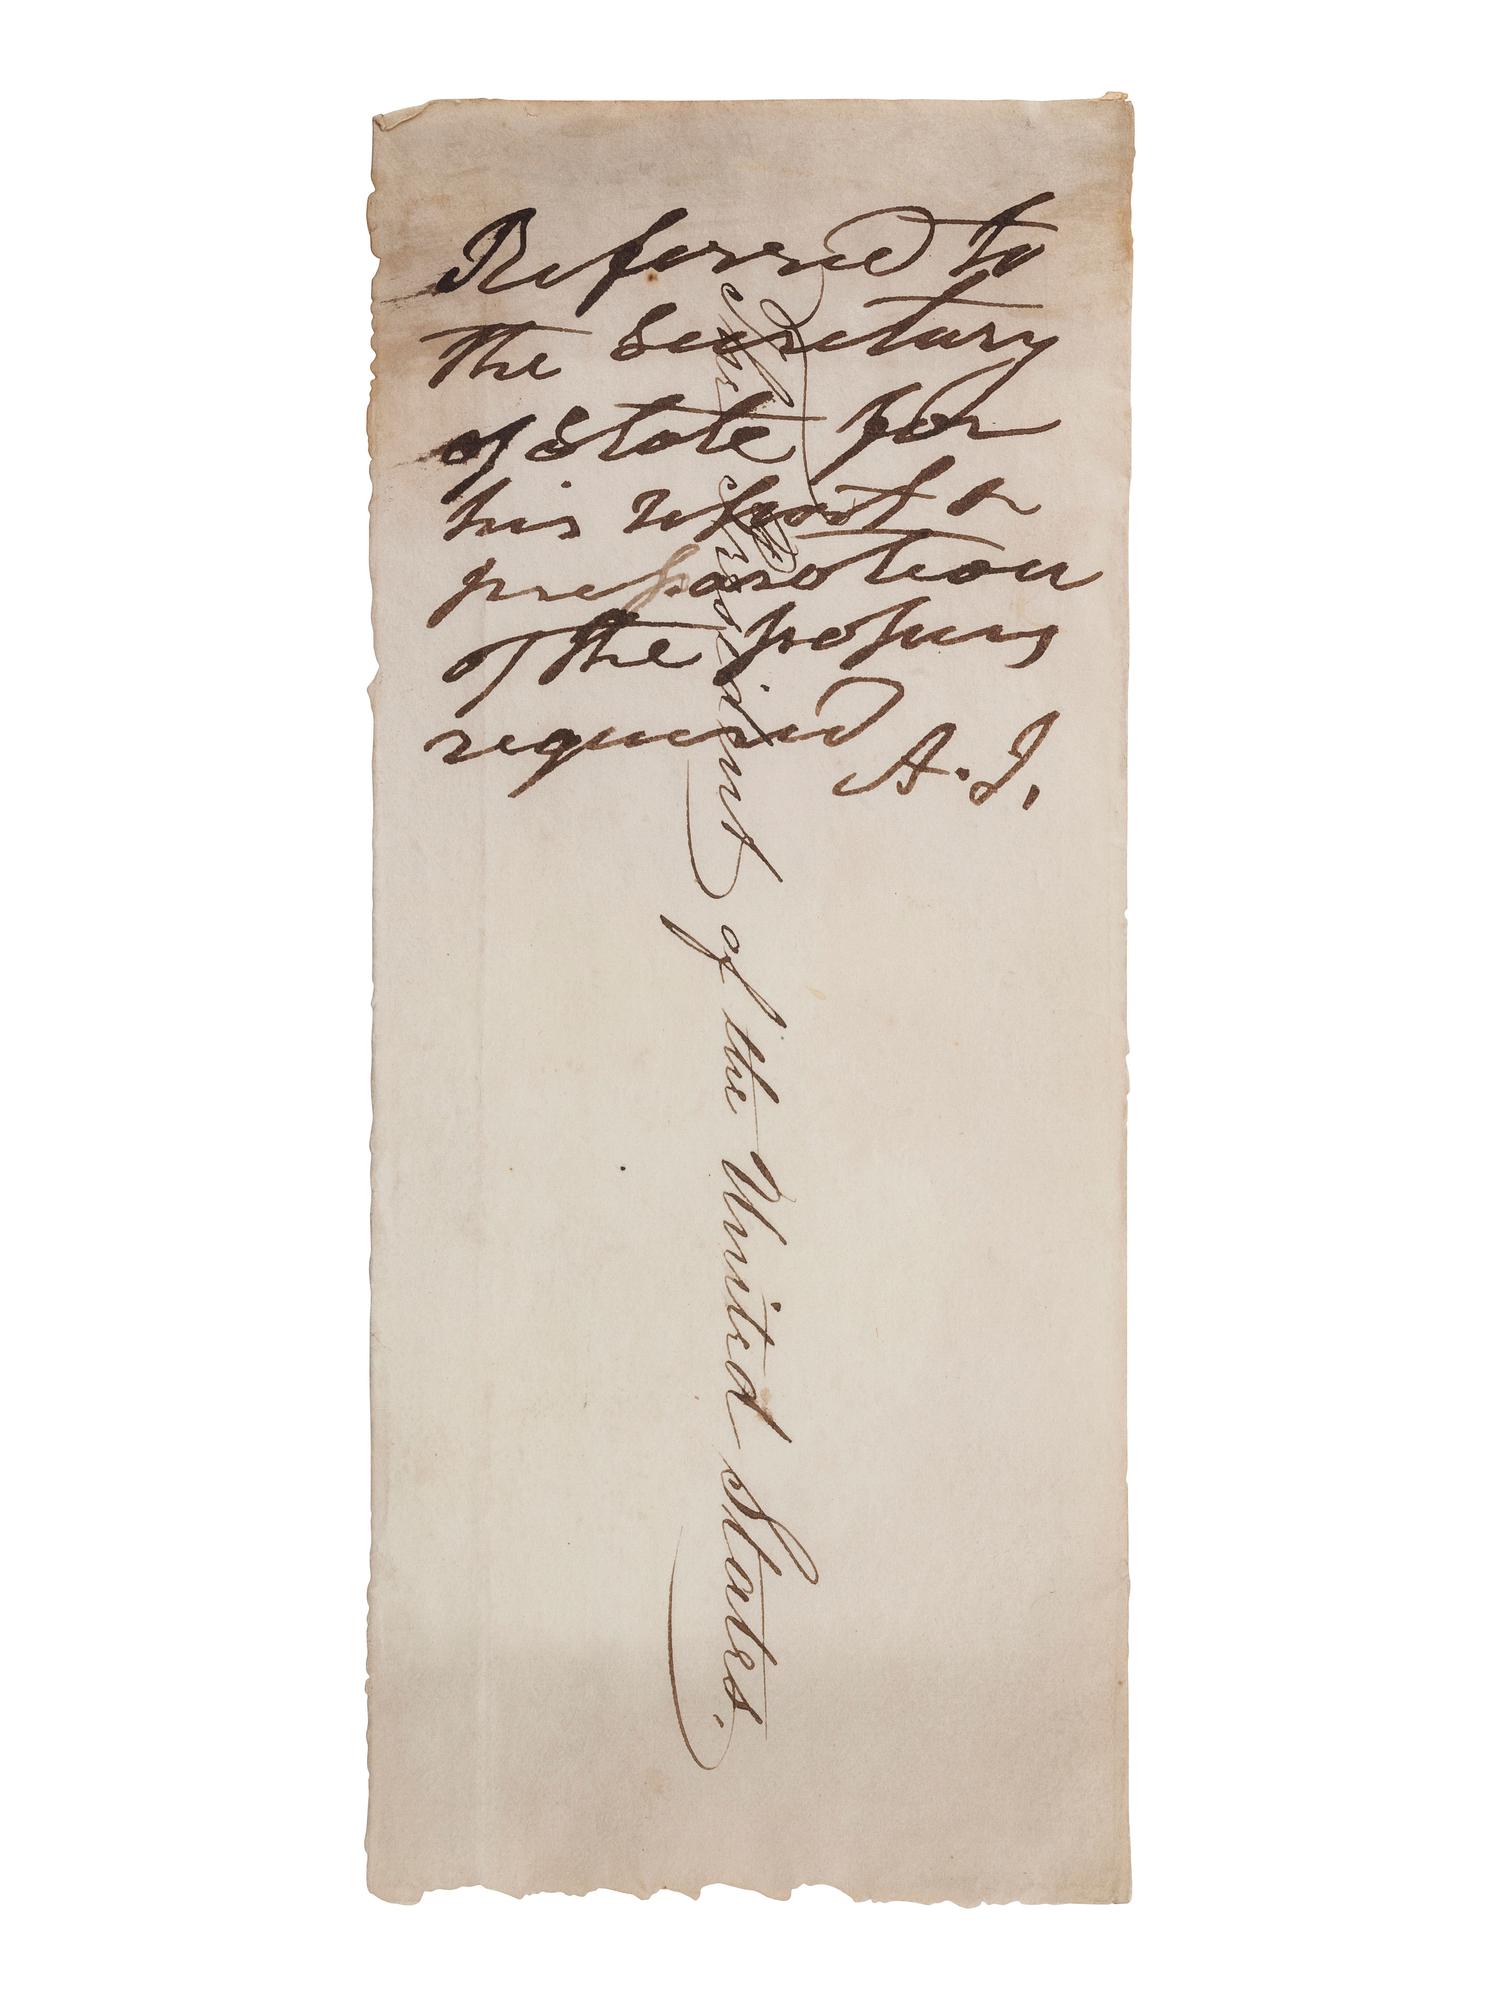 Referred to
the Secretary
of State for
his report &
preparation
of the papers
required
A. J.
The President of the United States.